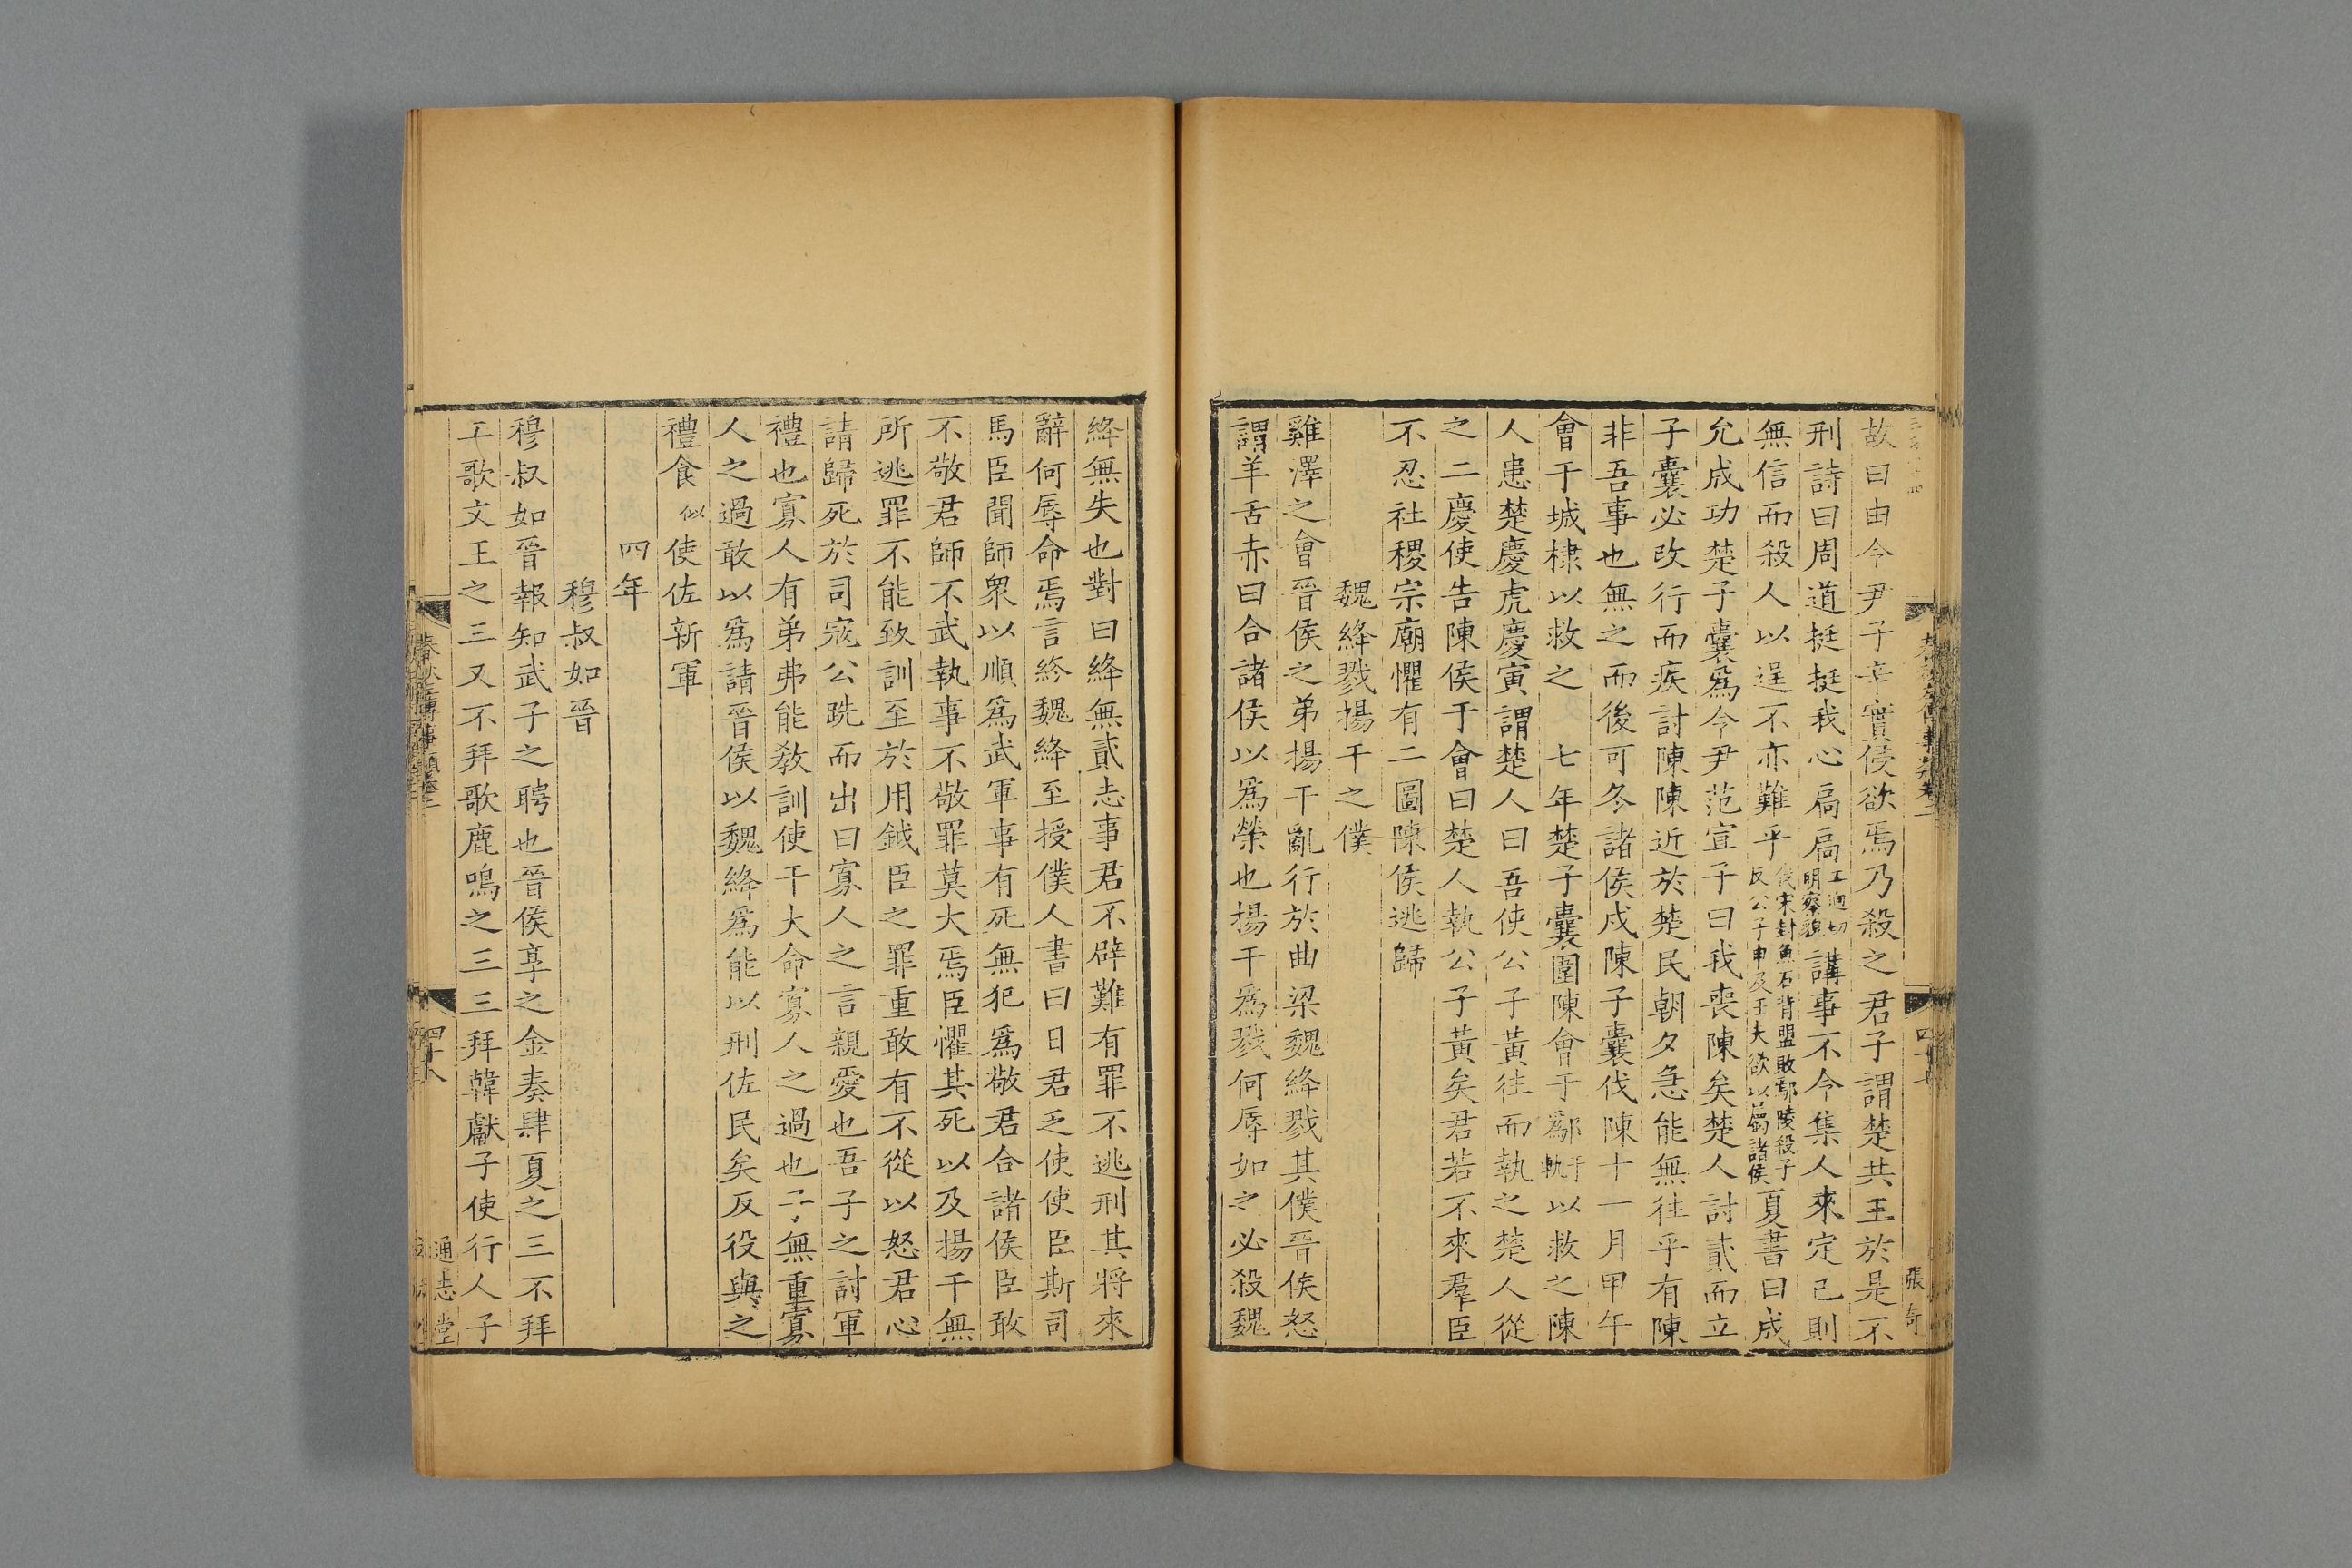 故曰由令尹子辛實侵欲焉乃殺之君子謂楚共王於是不
刑詩曰周道挺挺我心扃扃工迥切明察貌講事不令集人來定己則
無信而殺人以逞不亦難乎伐宋封魚石背盟敗鄢陵殺子反公子申及壬夫欲以屬諸侯夏書曰成
允成功楚子囊爲令尹范宣子曰我喪陳矣楚人討貳而立
子囊必改行而疾討陳陳近於楚民朝夕急能無往乎有陳
非吾事也無之而後可冬諸侯戍陳子囊伐陳十一月甲午
會于城棣以救之　七年楚子囊圍陳會于鄬于軌以救之陳
人患楚慶虎慶寅謂楚人曰吾使公子黃往而執之楚人從
之二慶使告陳侯于會曰楚人執公子黃矣君若不來羣臣
不忍社稷宗廟懼有二圖陳侯逃歸
魏絳戮揚干之僕
雞澤之會晉侯之弟揚干亂行於曲梁魏絳戮其僕晉侯怒
謂羊舌赤曰合諸侯以爲榮也揚干爲戮何辱如之必殺魏
張奇
絳無失也對曰絳無貳志事君不辟難有罪不逃刑其將來
辭何辱命焉言終魏絳至授僕人書曰日君乏使使臣斯司
馬臣聞師衆以順爲武軍事有死無犯爲敬君合諸侯臣敢
不敬君師不武執事不敬罪莫大焉臣懼其死以及揚干無
所逃罪不能致訓至於用鉞臣之罪重敢有不從以怒君心
請歸死於司寇公跣而出曰寡人之言親愛也吾子之討軍
禮也寡人有弟弗能敎訓使干大命寡人之過也子無重寡
人之過敢以爲請晉侯以魏絳爲能以刑佐民矣反役與之
禮食似使佐新軍
四年
穆叔如晉
穆叔如晉報知武子之聘也晉侯享之金奏肆夏之三不拜
工歌文王之三又不拜歌鹿鳴之三三拜韓獻子使行人子
春秋左傳事類卷二
四十八
通志堂